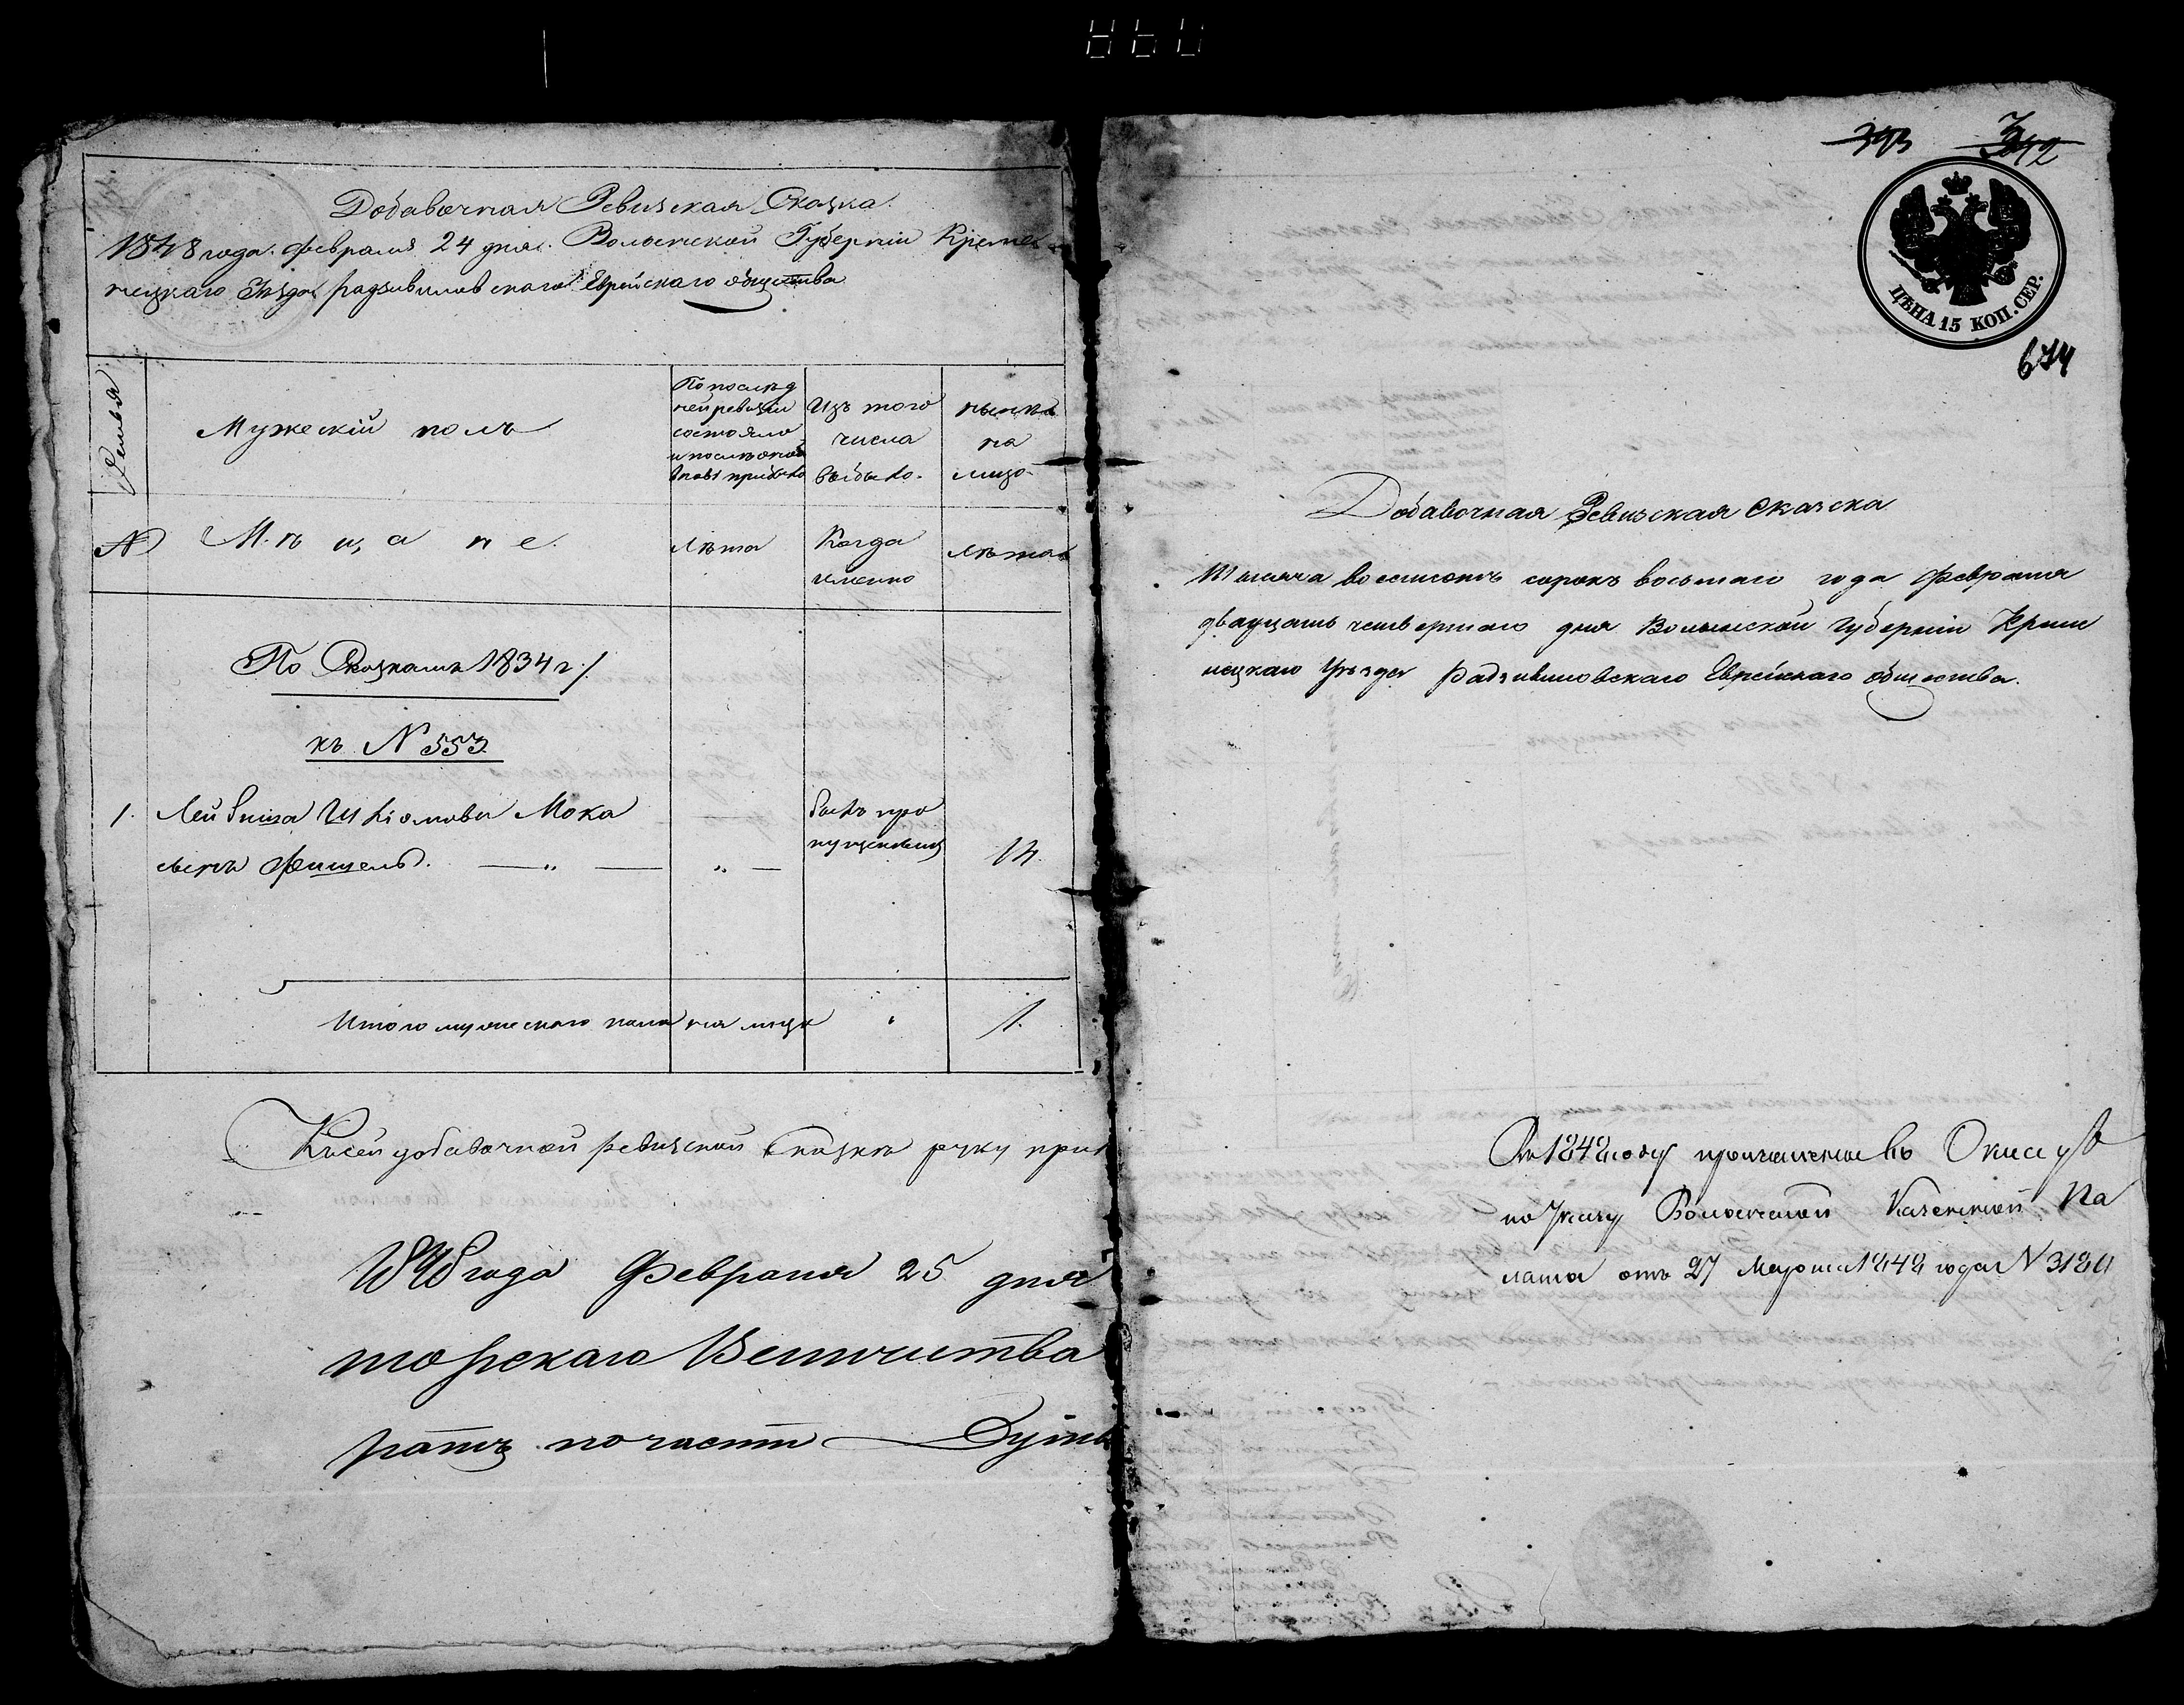 Добавочная Ревизская Сказка.
1848 года. февраля 24 дня. Волынской Губерніи Креме
нецкаго Уѣзда радзивиловскаго Еврейскаго общества
Семья
Мужескій полъ
По послѣд
ней ревизіи
состояло
и послѣ оной
вновь прибыло
Изъ того
числа
выбыло.
нынѣ
на
лицо.
N
Мѣщане.
Лѣта
Когда
именно
Лѣта
По Сказкамъ 1834 г.
къ N 553
1. Лейбиша Шліомовы Мока
сынъ Фишель. — „ — „ —
былъ про
пущеный
14.
Итого мужескаго пола на лицо
1.
Къ сей добавочной ревизской сказкѣ руку при
1848 года Февраля 25 дня
торскаго Величества
ратъ почасти
393
342
ЦѢНА 15 КОП. СЕР.
674
Добавочная Ревизская сказска
Тысяча восемсотъ сорокъ восьмаго года Февраля
двадцать четвертаго дня Волынской Губерніи Креме
нецкаго Уѣзда Радзивиловскаго Еврейскаго общества.
1848 году причислено въ Окладъ
по Указу Волынской Казенной Па
латы отъ 27 Марта 1848 года N